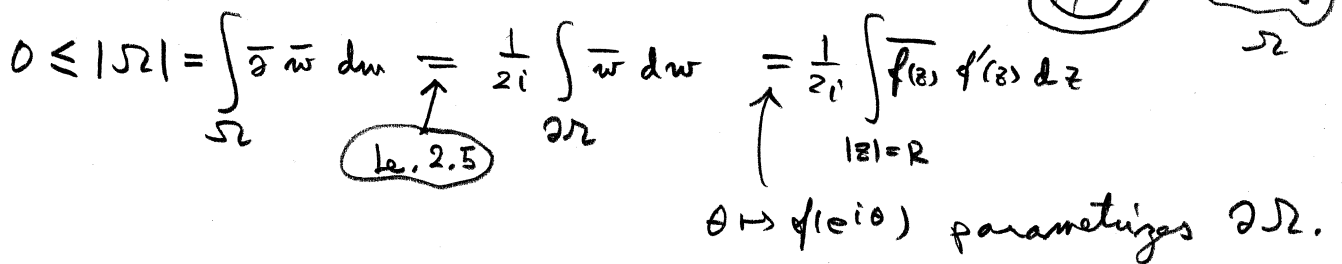 Ω
0 ≤ |Ω| = ∫_Ω ∂̄ w̄ dm = 1/2i ∫_∂Ω w̄ dw = 1/2i ∫_|z|=R \overline{f(z)} f'(z) dz
Le. 2.5
θ ↦ f(e^iθ) parametrizes ∂Ω.